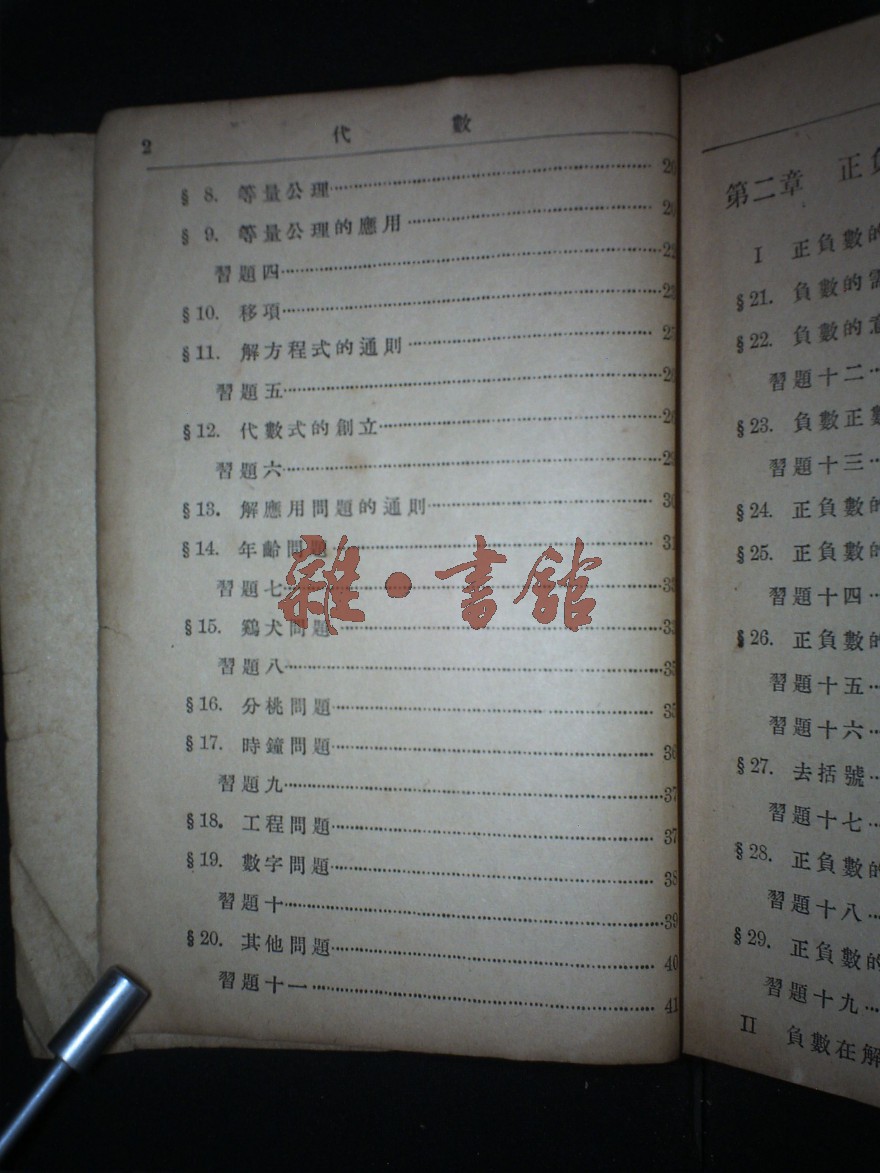 2 代數
§ 8. 等量公理 20
§ 9. 等量公理的應用 20
習題四 22
§10. 移項
§11. 解方程式的通則
習題五
§12. 代數式的創立
習題六 29
§13. 解應用問題的通則 30
§14. 年齡問題 31
習題七 33
§15. 鷄犬問題 33
習題八 35
§16. 分桃問題 35
§17. 時鐘問題 36
習題九 37
§18. 工程問題 37
§19. 數字問題 38
習題十 39
§20. 其他問題 40
習題十一 41
雜·書館
第二章 正
I 正負數的
§21. 負數的
§22. 負數的
習題十二
§23. 負數正數
習題十三
§24. 正負數的
§25. 正負數的
習題十四
§26. 正負數的
習題十五
習題十六
§27. 去括號
習題十七
§28. 正負數的
習題十八
§29. 正負數的
習題十九
II 負數在解